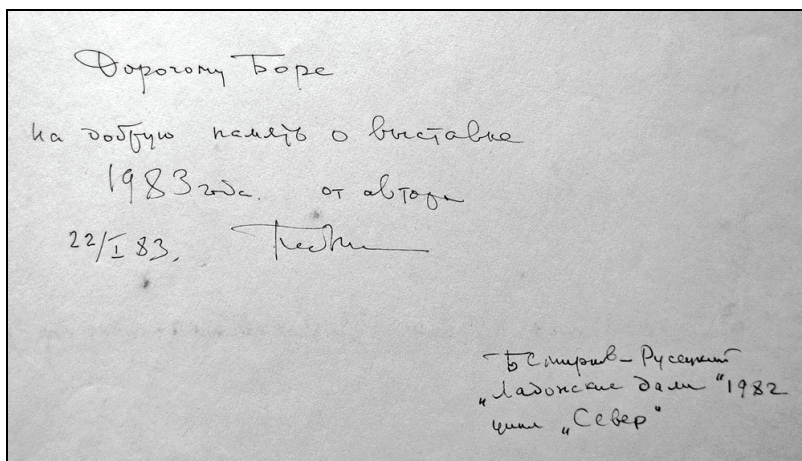 Дорогому Боре
на добрую память о выставке
1983 года. от автора
22/I 83.
Б Смирнов-Русецкий
„Ладожские дали" 1982
цикл „Север"